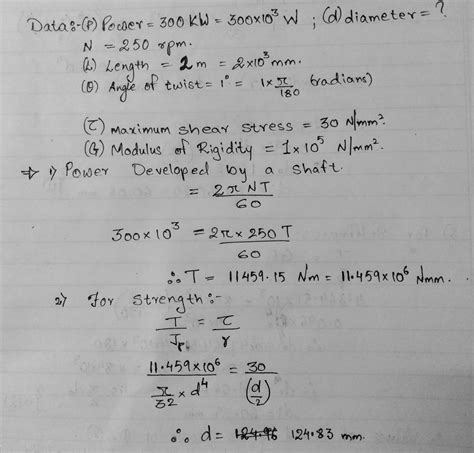 Data:- (P) Power = 300 KW = 300x10³ W ; (d) diameter = ?
N = 250 rpm.
(L) Length = 2 m = 2x10³ mm.
(θ) Angle of twist = 1° = 1x π/180 (radians)
(τ) maximum shear stress = 30 N/mm².
(G) Modulus of Rigidity = 1x10⁵ N/mm².
⇒ 1) Power Developed by a shaft.
= 2πNT/60
300x10³ = 2π x 250 T/60
∴ T = 11459.15 Nm = 11.459x10⁶ Nmm.
2) For Strength :-
T/Jp = τ/r
11.459x10⁶/(π/32 x d⁴) = 30/(d/2)
∴ d = 124.83 mm.